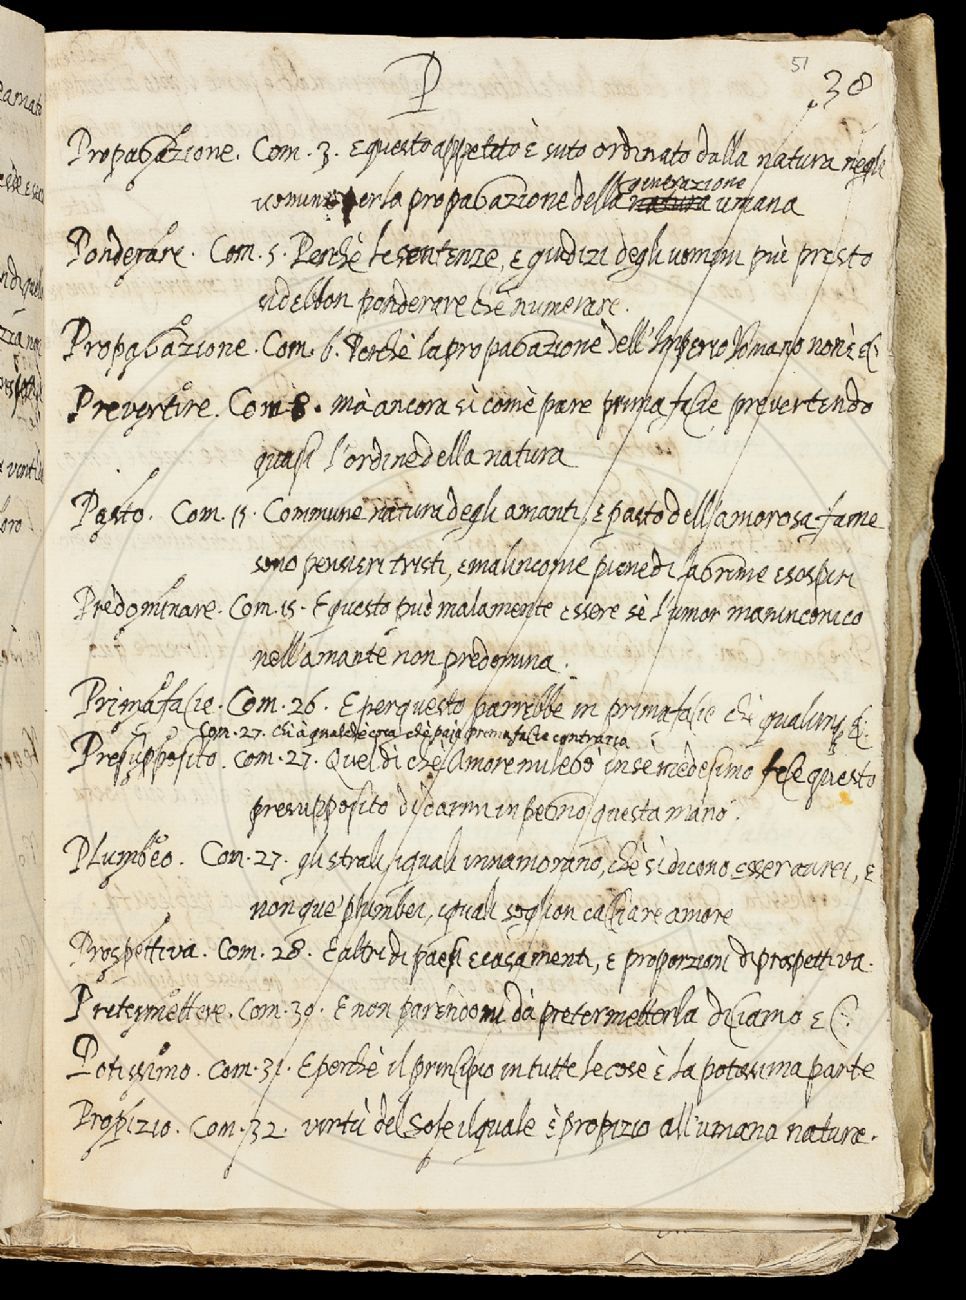 P
51
38
Propagazione. Com. 3. E questo appetito è suto ordinato dalla natura negli
uomini per la propagazione della natura umana
generazione
Ponderare. Com. 5. Perchè le sentenze, e giudizi degli uomini più presto
si debbon ponderare che numerare.
Propagazione. Com. 6. Perchè la propagazione dell'Imperio Romano non è &.
Prevertire. Com 8. mà ancora sì come pare prima facie prevertendo
quasi l'ordine della natura
Pasto. Com. 15. Commune natura degli amanti, e pasto dell'amorosa fame
sono pensieri tristi, e malinconie piene di lagrime e sospiri
Predominare. Com. 15. E questo può malamente essere sè l'umor maninconico
nell'amante non predomina.
Prima facie. Com. 26. E per questo parrebbe in prima facie che qualunq &.
Com. 27. Chi à qualche cosa che paia prima facie contraria
Presupposito. Com. 27. Quel dì che Amore mi legò in se medesimo fece questo
presupposito di darmi in pegno questa mano.
Plumbeo. Com. 27. gli strali i quali innamorano, che si dicono esser aurei, e
non que' plumbei, i quali soglion cacciare amore
Prospettiva. Com. 28. E altri di paesi e casamenti, e proporzioni di prospettiva.
Pretermettere. Com. 30. E non parendomi dà pretermetterla diciamo &.
Potissimo. Com. 31. E perchè il principio in tutte le cose è la potissima parte
Propizio. Com. 32. virtù del Sole il quale è propizio all'umana natura.